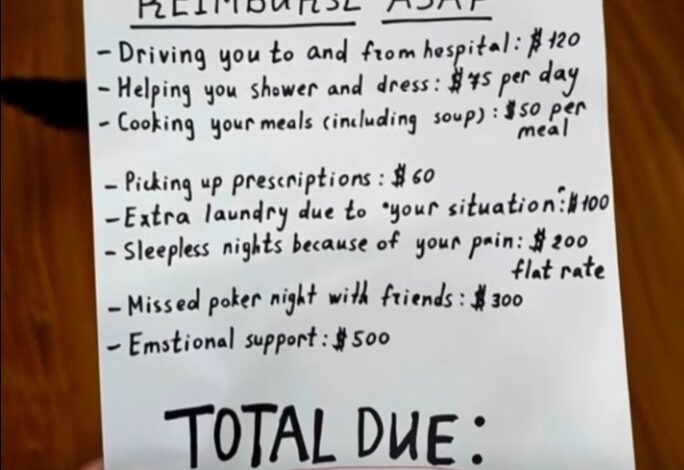 REIMBURSE ASAP
- Driving you to and from hospital: $120
- Helping you shower and dress: $75 per day
- Cooking your meals (including soup): $50 per
meal
- Picking up prescriptions: $60
- Extra laundry due to "your situation": $100
- Sleepless nights because of your pain: $200
flat rate
- Missed poker night with friends: $300
- Emotional support: $500
TOTAL DUE: